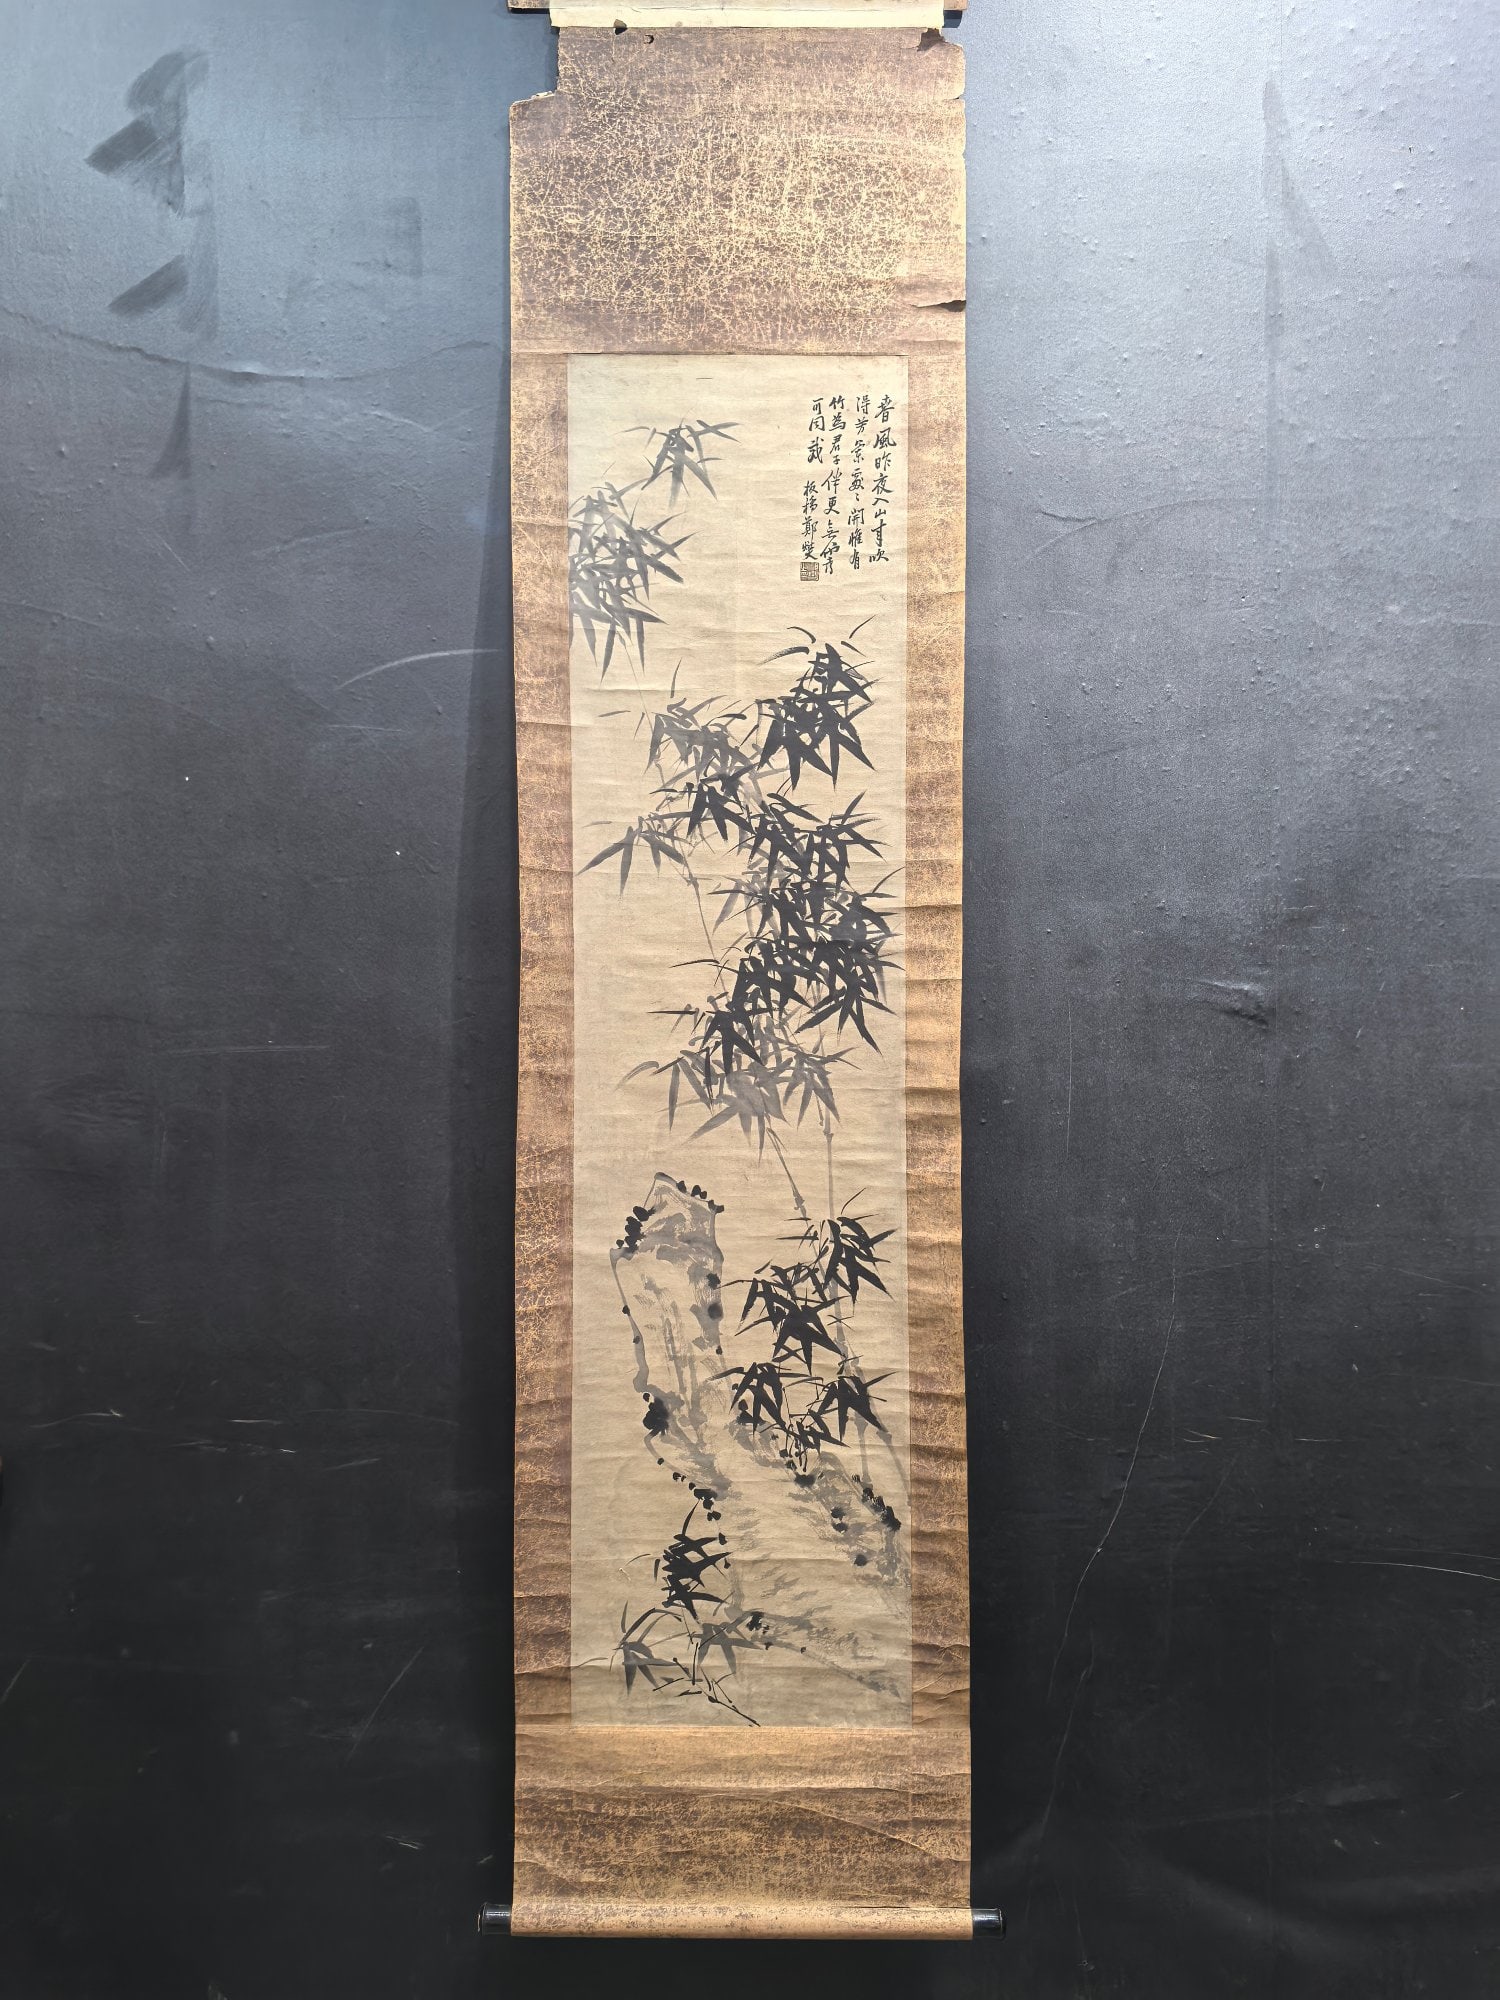 春風昨夜入山來吹
得芳蘭處々開惟有
竹為君子伴更無衆卉
可同栽
板橋鄭燮